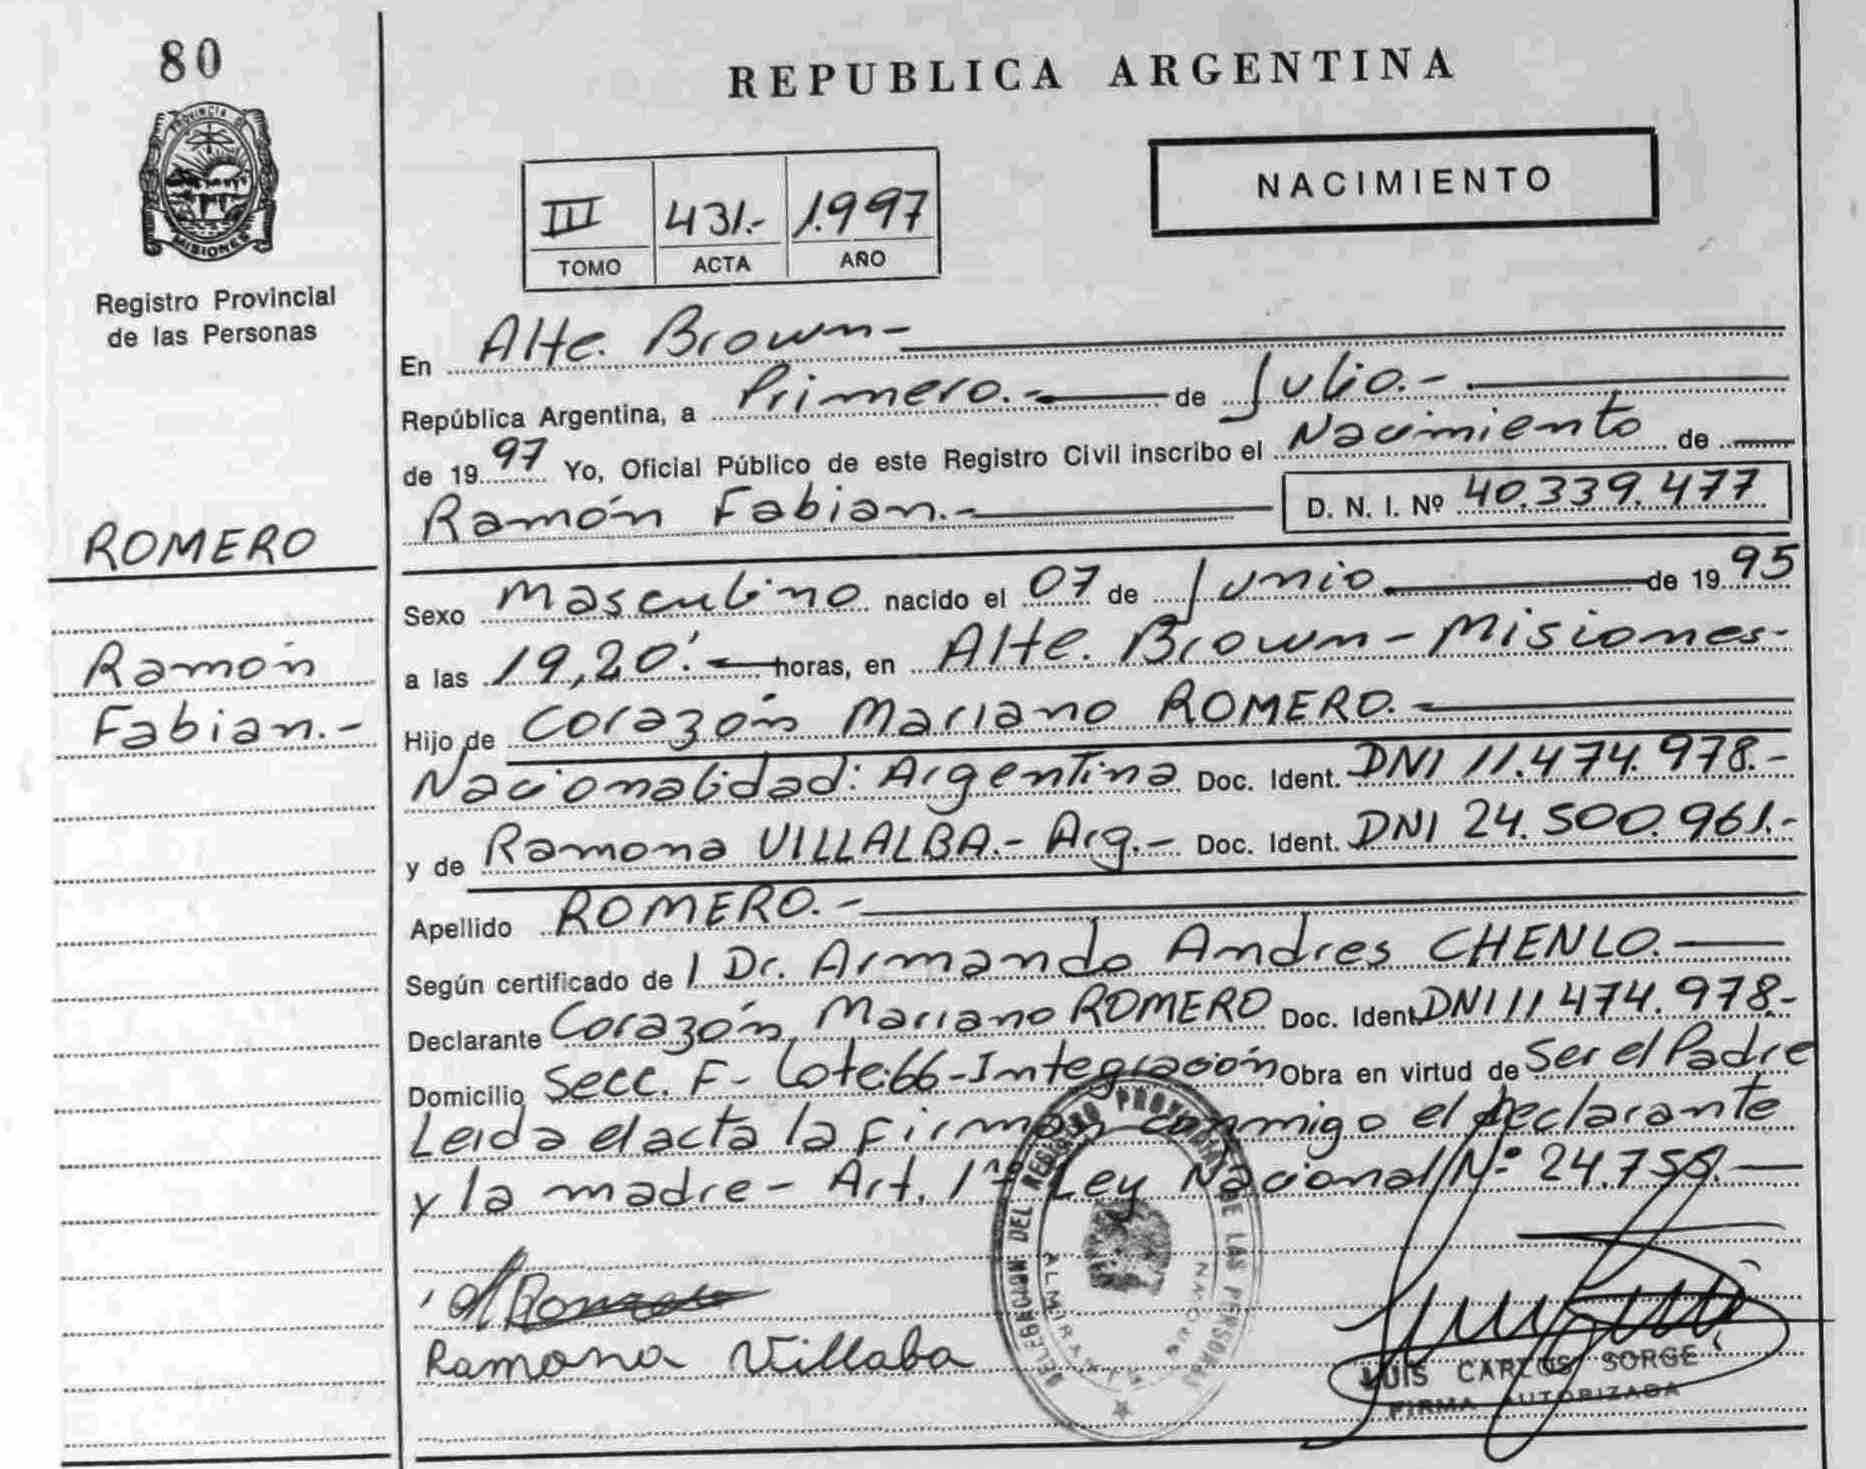 80
PROVINCIA DE
MISIONES
Registro Provincial
de las Personas
ROMERO
Ramón
Fabian.-
REPUBLICA ARGENTINA
NACIMIENTO
III 431.- 1.997
TOMO ACTA AÑO
En Alte. Brown-
República Argentina, a Primero.- de Julio.-
de 1997 Yo, Oficial Público de este Registro Civil inscribo el Nacimiento de
Ramón Fabian.- D. N. I. Nº 40.339.477
Sexo Masculino nacido el 07 de Junio de 1995
a las 19,20.- horas, en Alte. Brown-Misiones-
Hijo de Corazón Mariano ROMERO.-
Nacionalidad: Argentina Doc. Ident. DNI 11.474.978.-
y de Ramona VILLALBA.- Arg.- Doc. Ident. DNI 24.500.961.-
Apellido ROMERO.-
Según certificado de / Dr. Armando Andres CHENLO.
Declarante Corazón Mariano ROMERO Doc. Ident. DNI 11474.978.-
Domicilio Secc. F- Lote:66-Integración Obra en virtud de Ser el Padre
Leida el acta la firman conmigo el declarante
y la madre- Art. 1º Ley Nacional Nº 24.755.
DELEGACION DEL REGISTRO PROVINCIAL DE LAS PERSONAS
Ramona Villaba
LUIS CARLOS SORGE
FIRMA AUTORIZADA